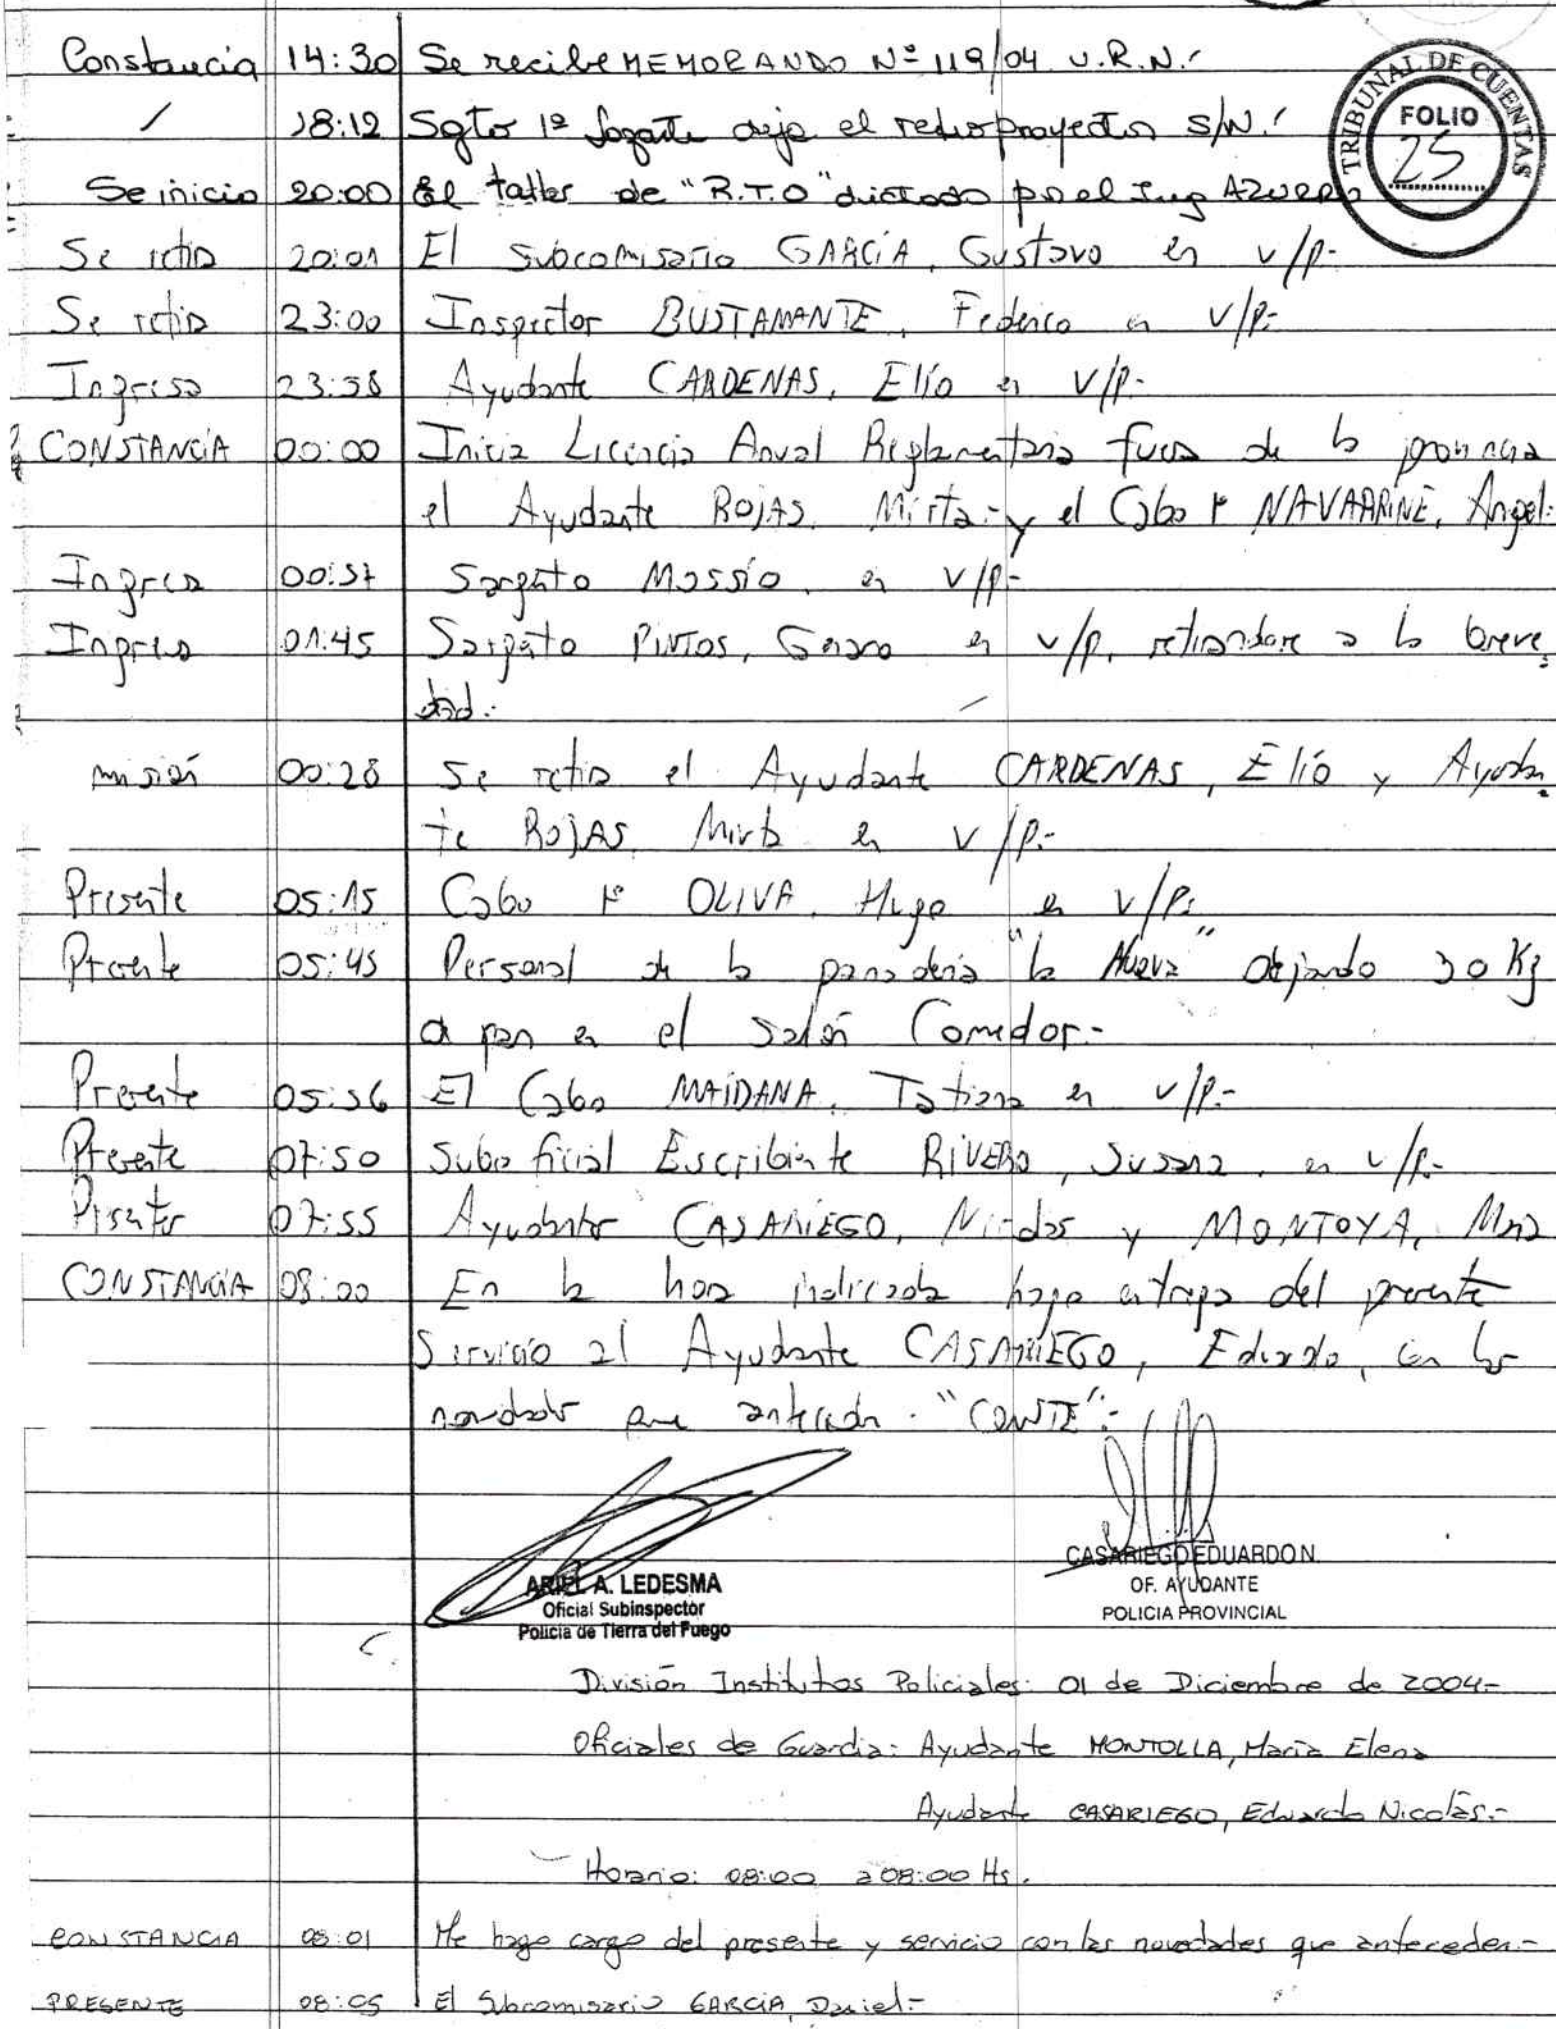 Constancia 14:30 Se recibe MEMORANDO Nº 119/04 U.R.N.
18:12 Sgto 1º deja el retroproyector S/N.
TRIBUNAL DE CUENTAS
FOLIO
25
Se inicio 20:00 El taller de "R.T.O" dictado por el Ing AZUERO
Se retira 20:01 El Subcomisario GARCIA, Gustavo en v/p.-
Se retira 23:00 Inspector BUSTAMANTE, Federico en v/p.-
Ingreso 23:58 Ayudante CARDENAS, Elío en v/p.-
CONSTANCIA 00:00 Inicia Licencia Anual Reglamentaria fuera de la provincia
el Ayudante ROJAS, Mirta.- y el Cabo 1º NAVARRINE, Angel.-
Ingresa 00:37 Sargento Mossío, en v/p.-
Ingresa 01:45 Sargento PINTOS, en v/p, retirandose a la breve
dad.-
00:28 Se retira el Ayudante CARDENAS, Elío y Ayudan
te ROJAS, Mirta en v/p.-
Presente 05:15 Cabo 1º OLIVA, Hugo en v/p.-
Presente 05:45 Personal de la panaderia "la Nueva" dejando 30 Kg
de pan en el salón Comedor.-
Presente 05:56 El Cabo MAIDANA, Tatiana en v/p.-
Presente 07:50 Suboficial Escribiente RIVERO, Susana, en v/p.-
Presentes 07:55 Ayudantes CASARIEGO, Nicolas y MONTOYA,
CONSTANCIA 08:00 En la hora indicada hago entrega del presente
Servicio al Ayudante CASARIEGO, Eduardo, con las
novedades que anteceden. "CONSTE".-
ARIEL A. LEDESMA
Oficial Subinspector
Policia de Tierra del Fuego
CASARIEGO EDUARDO N.
OF. AYUDANTE
POLICIA PROVINCIAL
División Institutos Policiales: 01 de Diciembre de 2004.-
Oficiales de Guardia: Ayudante MONTOLLA, María Elena
Ayudante CASARIEGO, Eduardo Nicolás.-
Horario: 08:00 a 08:00 Hs.
CONSTANCIA 08:01 Me hago cargo del presente y servicio con las novedades que anteceden.-
PRESENTE 08:05 El Subcomisario GARCIA, Daniel.-